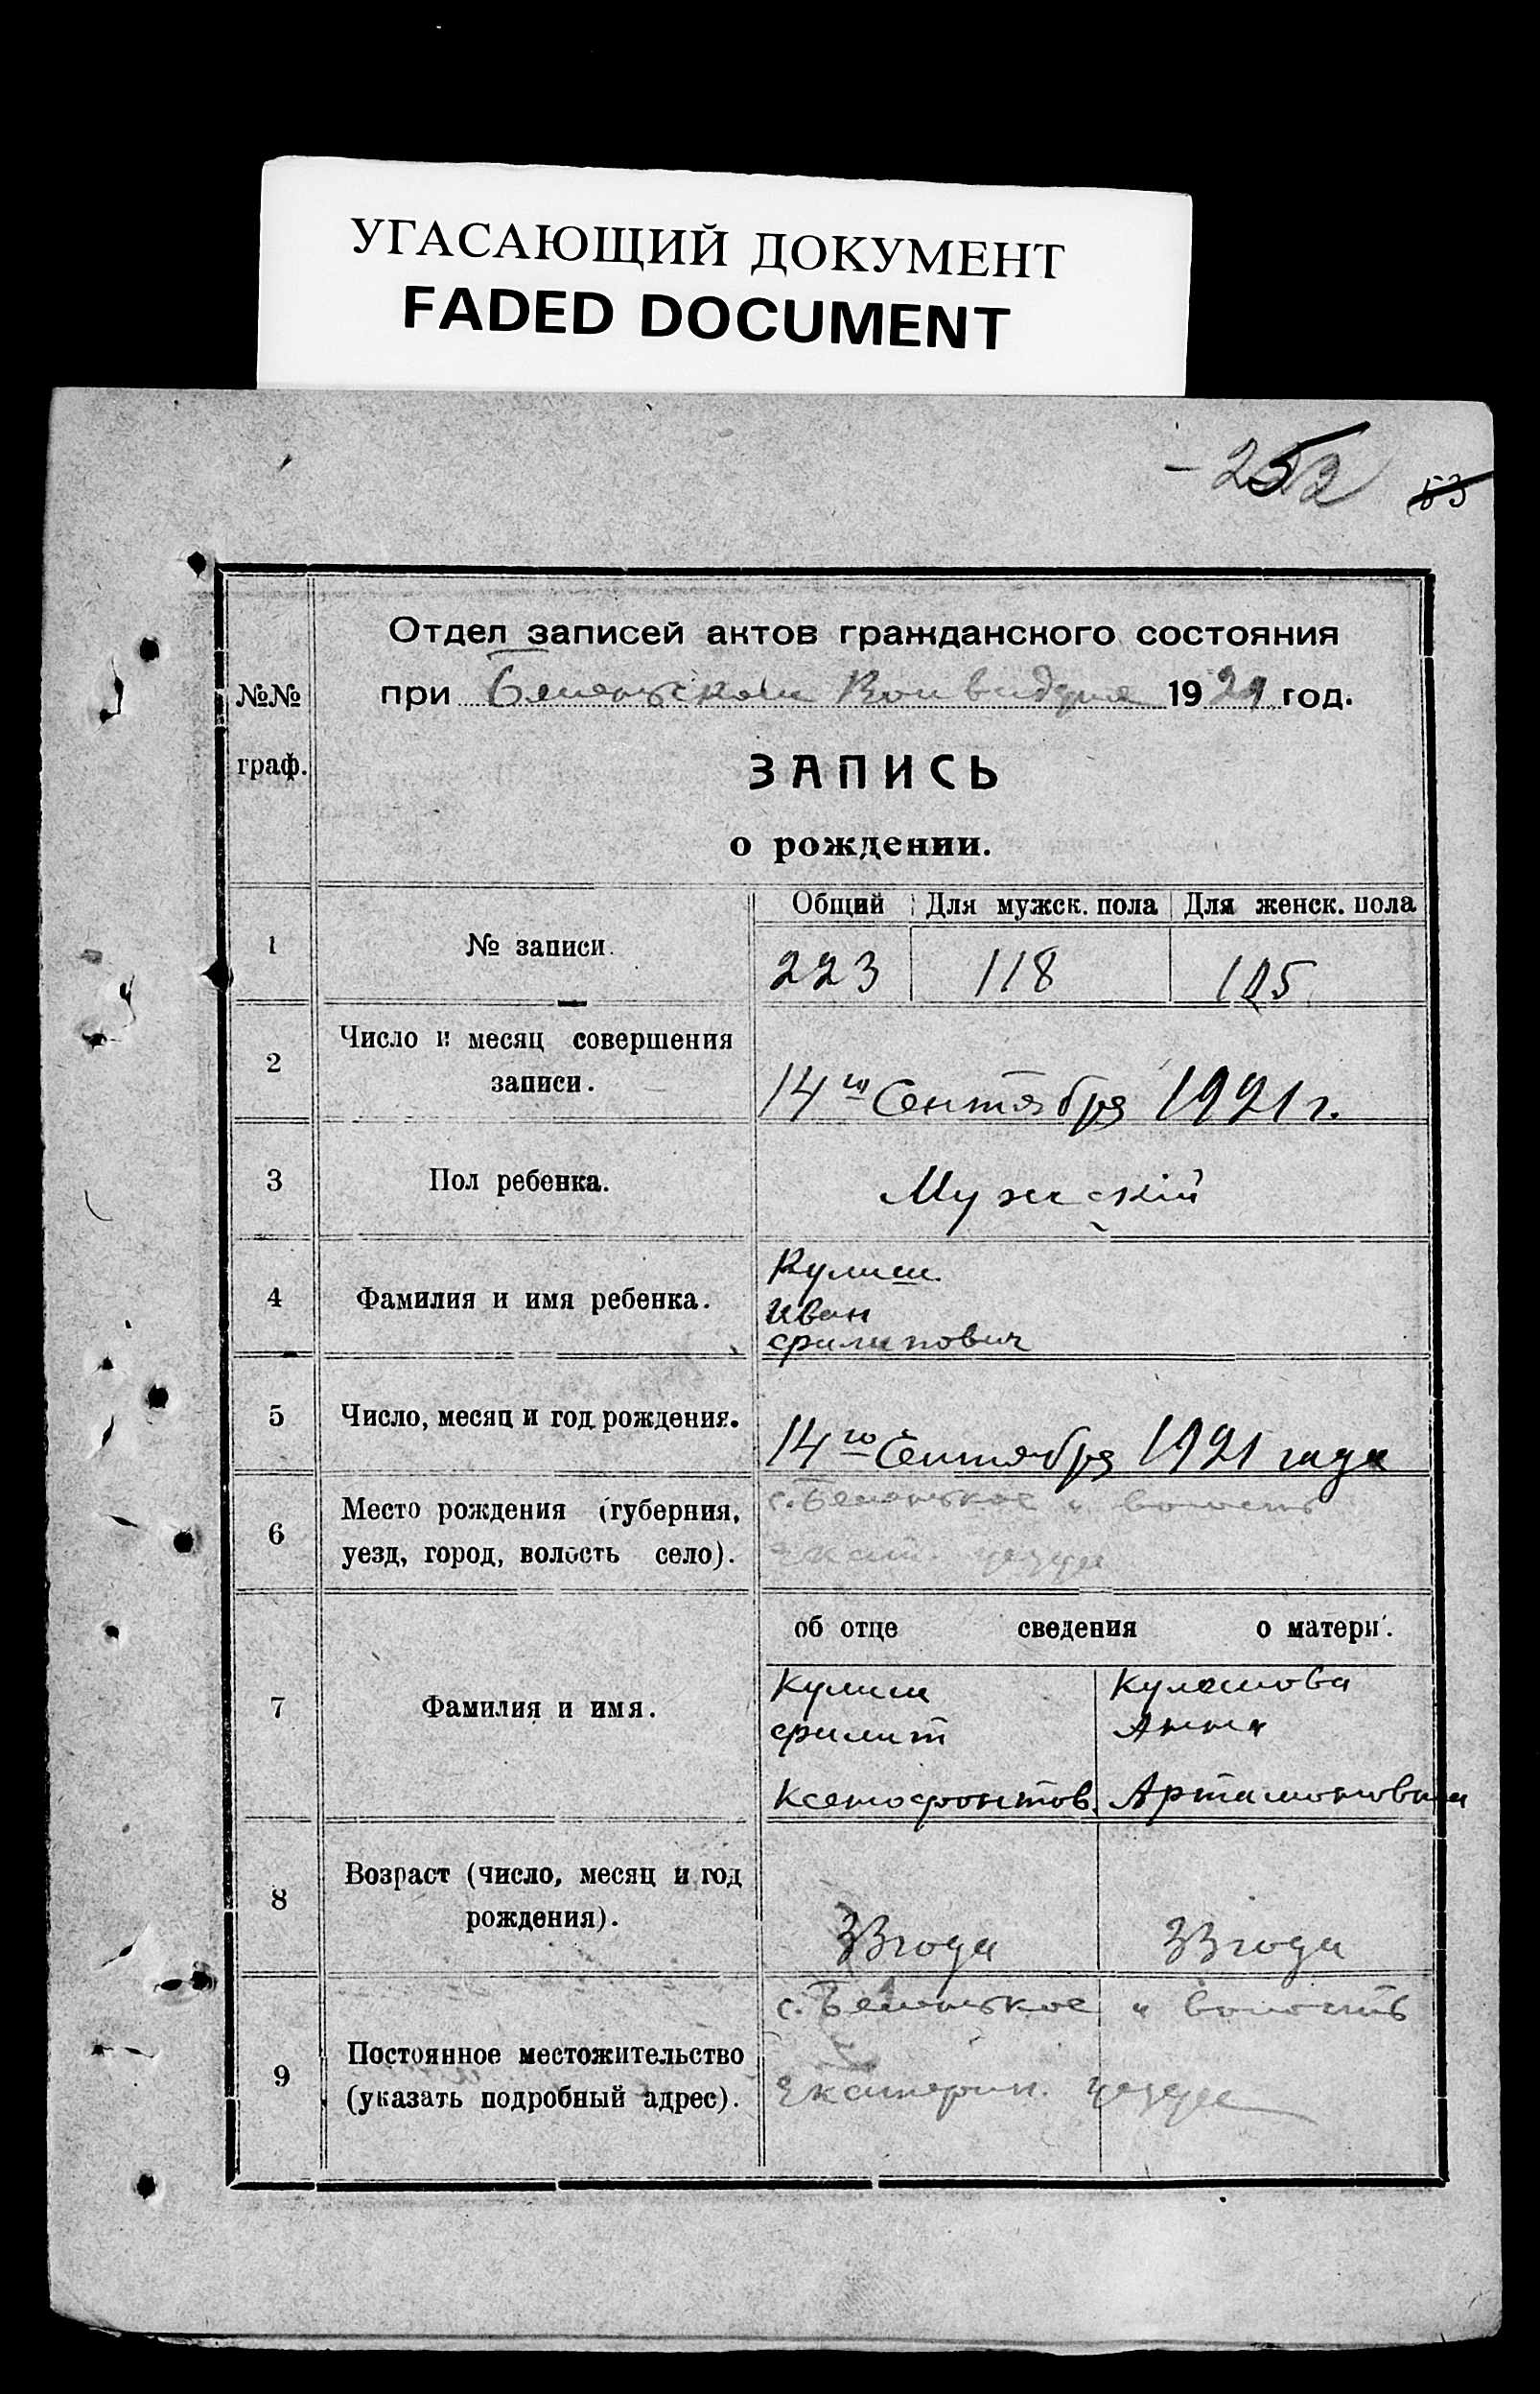 УГАСАЮЩИЙ ДОКУМЕНТ
FADED DOCUMENT
252 53
Отдел записей актов гражданского состояния
№№ при 1921 год.
граф.
ЗАПИСЬ
о рождении.
Общий Для мужск. пола Для женск. пола
1 № записи. 223 118 105
2 Число и месяц совершения
записи. 14го Сентября 1921 г.
3 Пол ребенка. Мужский
4 Фамилия и имя ребенка. Кулиш
Иван
Филипович
5 Число, месяц и год рождения. 14го Сентября 1921 года
6 Место рождения (губерния, с. Беленькое " волость
уезд, город, волость село). Екат. уезда
об отце сведения о матери.
7 Фамилия и имя. Кулиш Кулешова
Филип Анна
Ксенофонтов. Артамоновна
8 Возраст (число, месяц и год
рождения). 33 года 33 года
9 Постоянное местожительство с. Беленькое " волость
(указать подробный адрес). Екатерин. уезда